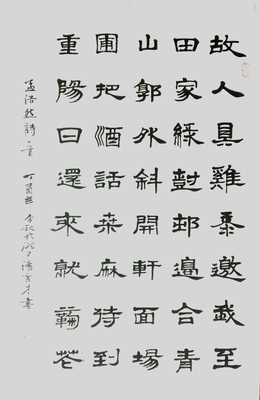 故人具雞黍邀我至
田家綠尌邨邊合青
山郭外斜開軒面場
圃把酒話桑麻待到
重陽日還來就蘜花
孟浩然詩一首